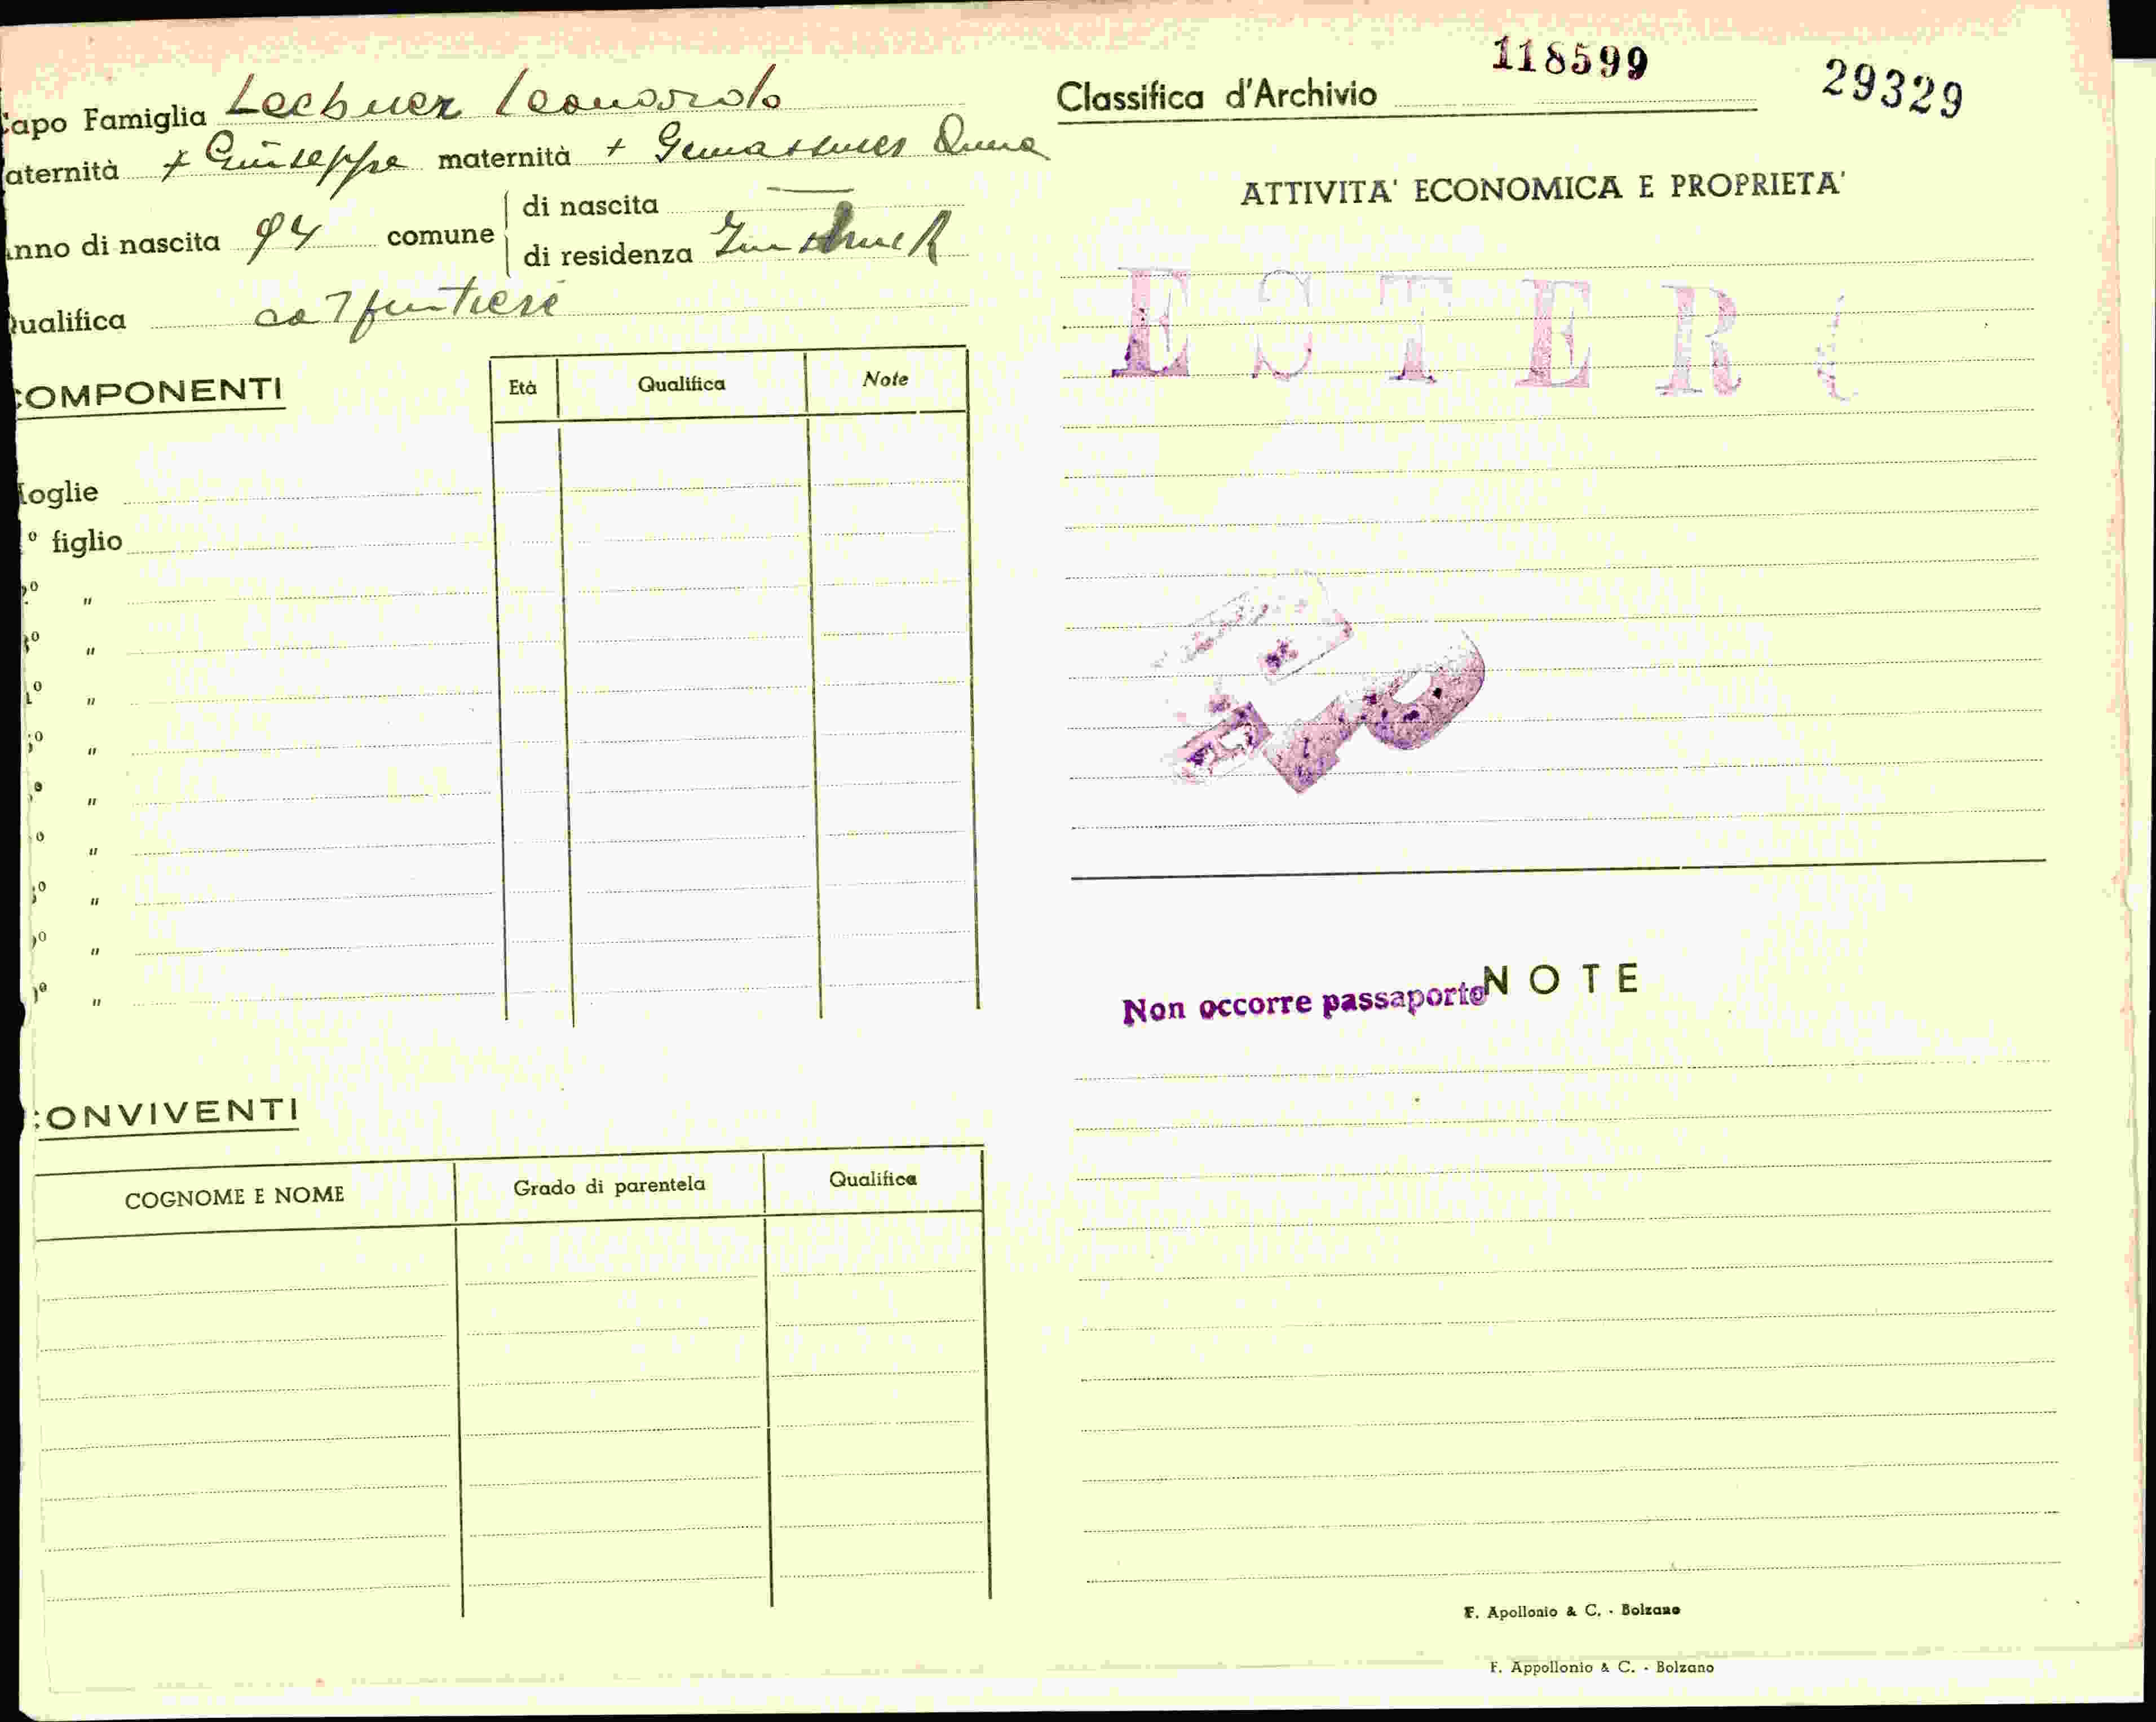 Capo Famiglia Lechner Leonardo
aternità + Giuseppe maternità + Anna
nno di nascita 94 comune di nascita —
di residenza Innsbruck
Qualifica carpentiere
COMPONENTI Età Qualifica Note
oglie
º figlio
º "
º "
º "
º "
º "
º "
º "
º "
º "
CONVIVENTI
COGNOME E NOME Grado di parentela Qualifica
118599 29329
Classifica d'Archivio
ATTIVITA' ECONOMICA E PROPRIETA'
ESTERO
Non occorre passaporto NOTE
F. Apollonio & C. - Bolzano
F. Appollonio & C. - Bolzano